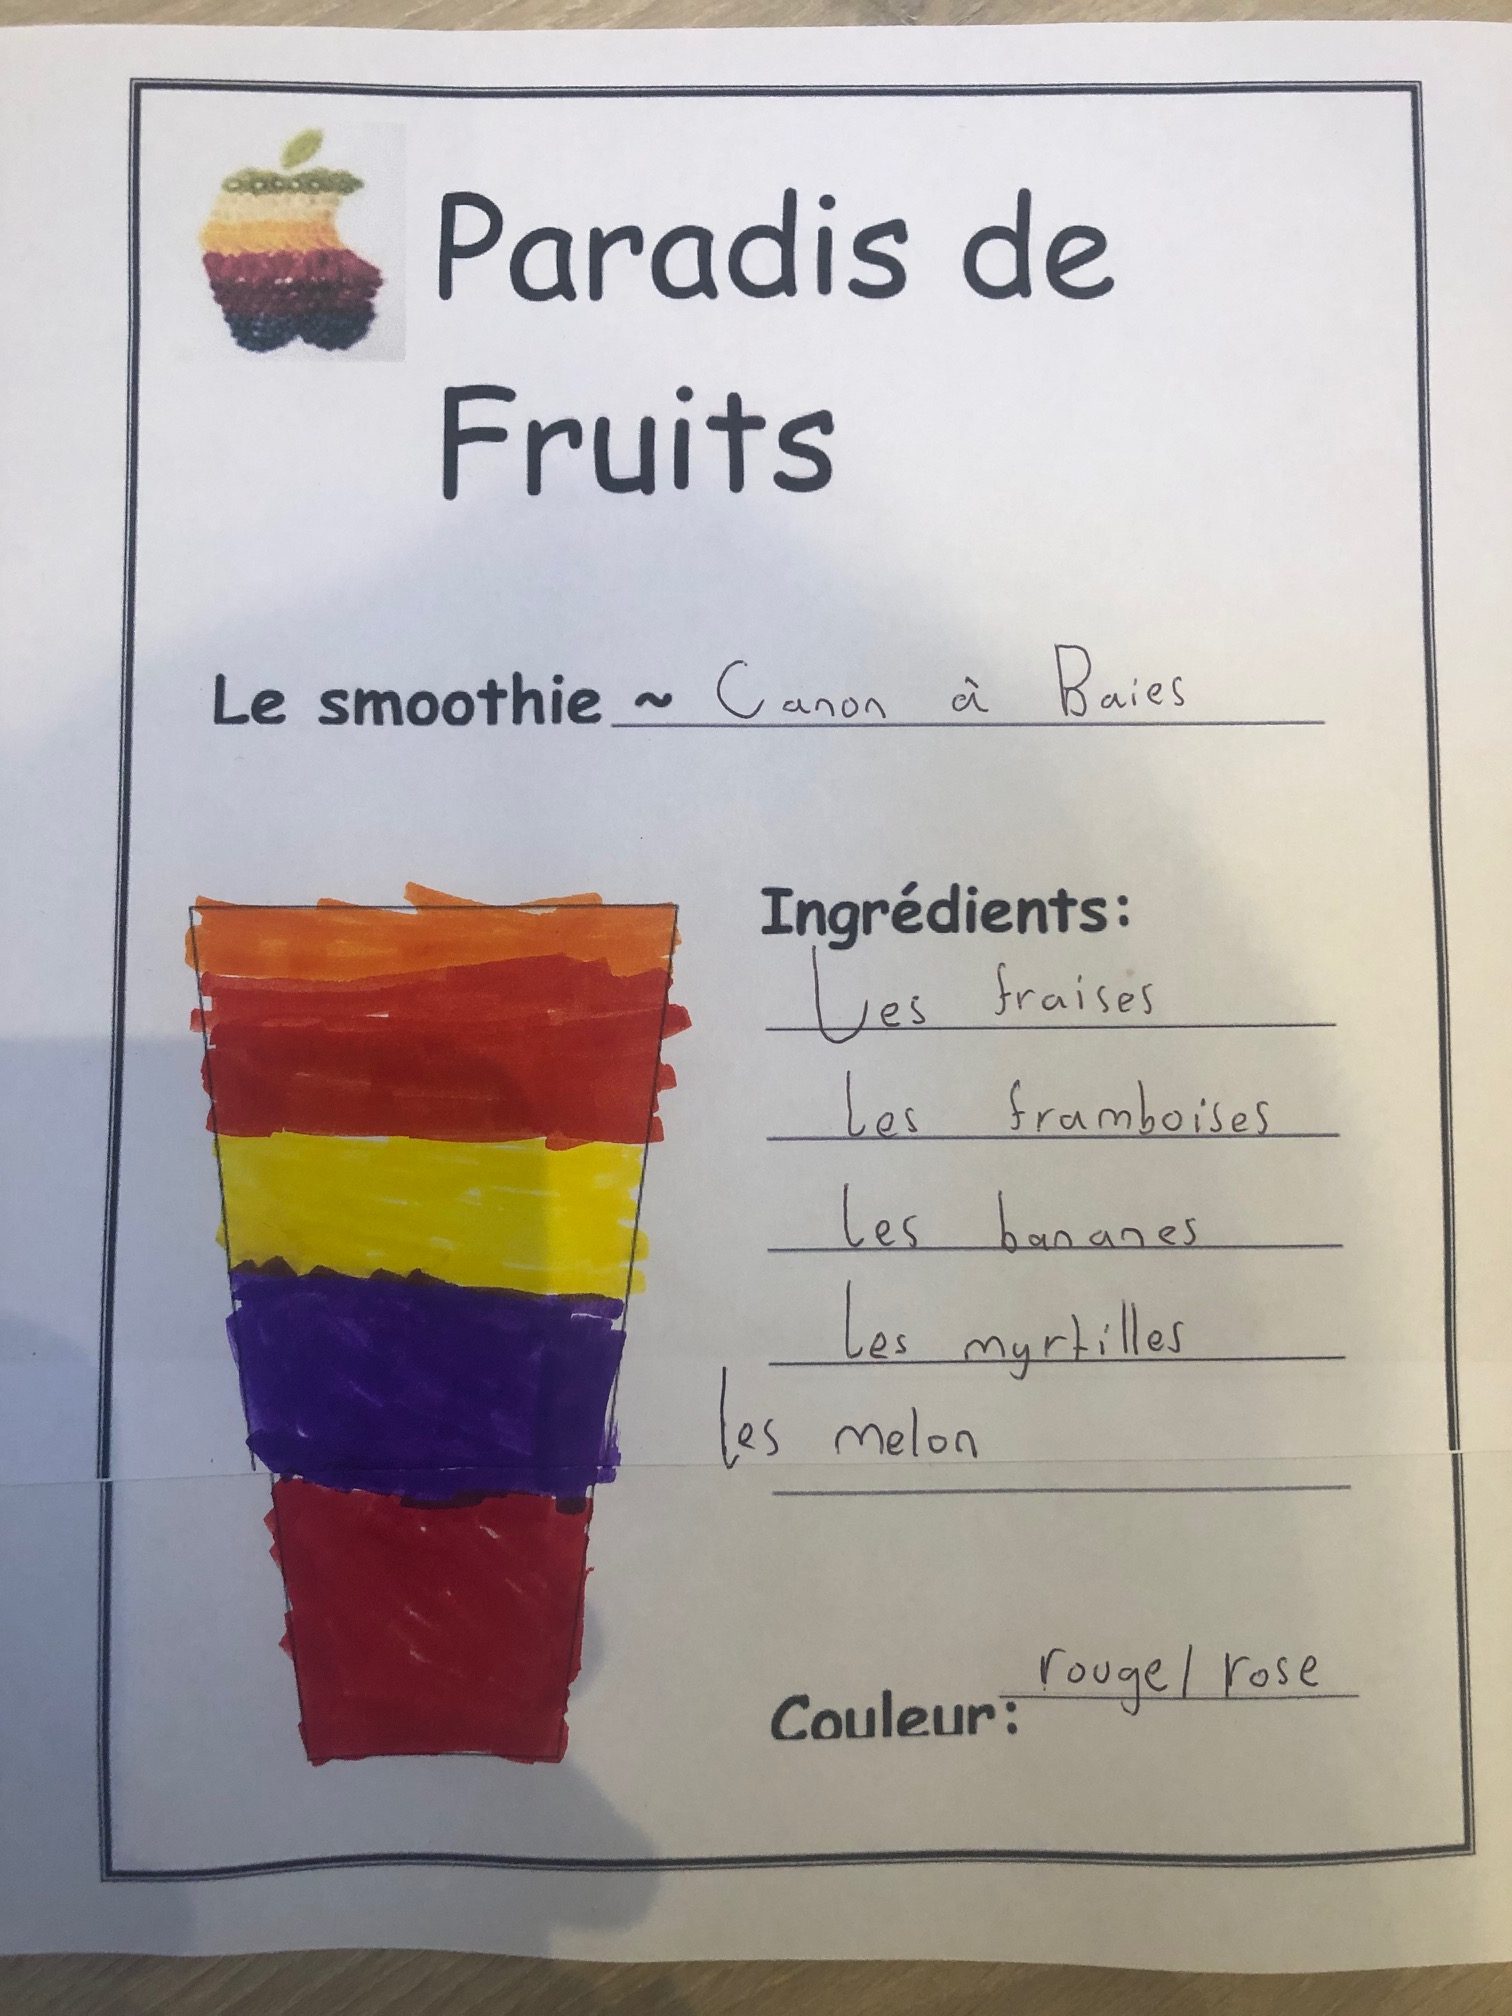 Paradis de
Fruits
Le smoothie ~ Canon à Baies
Ingrédients:
Les fraises
les framboises
les bananes
les myrtilles
les melon
Couleur: rouge/rose